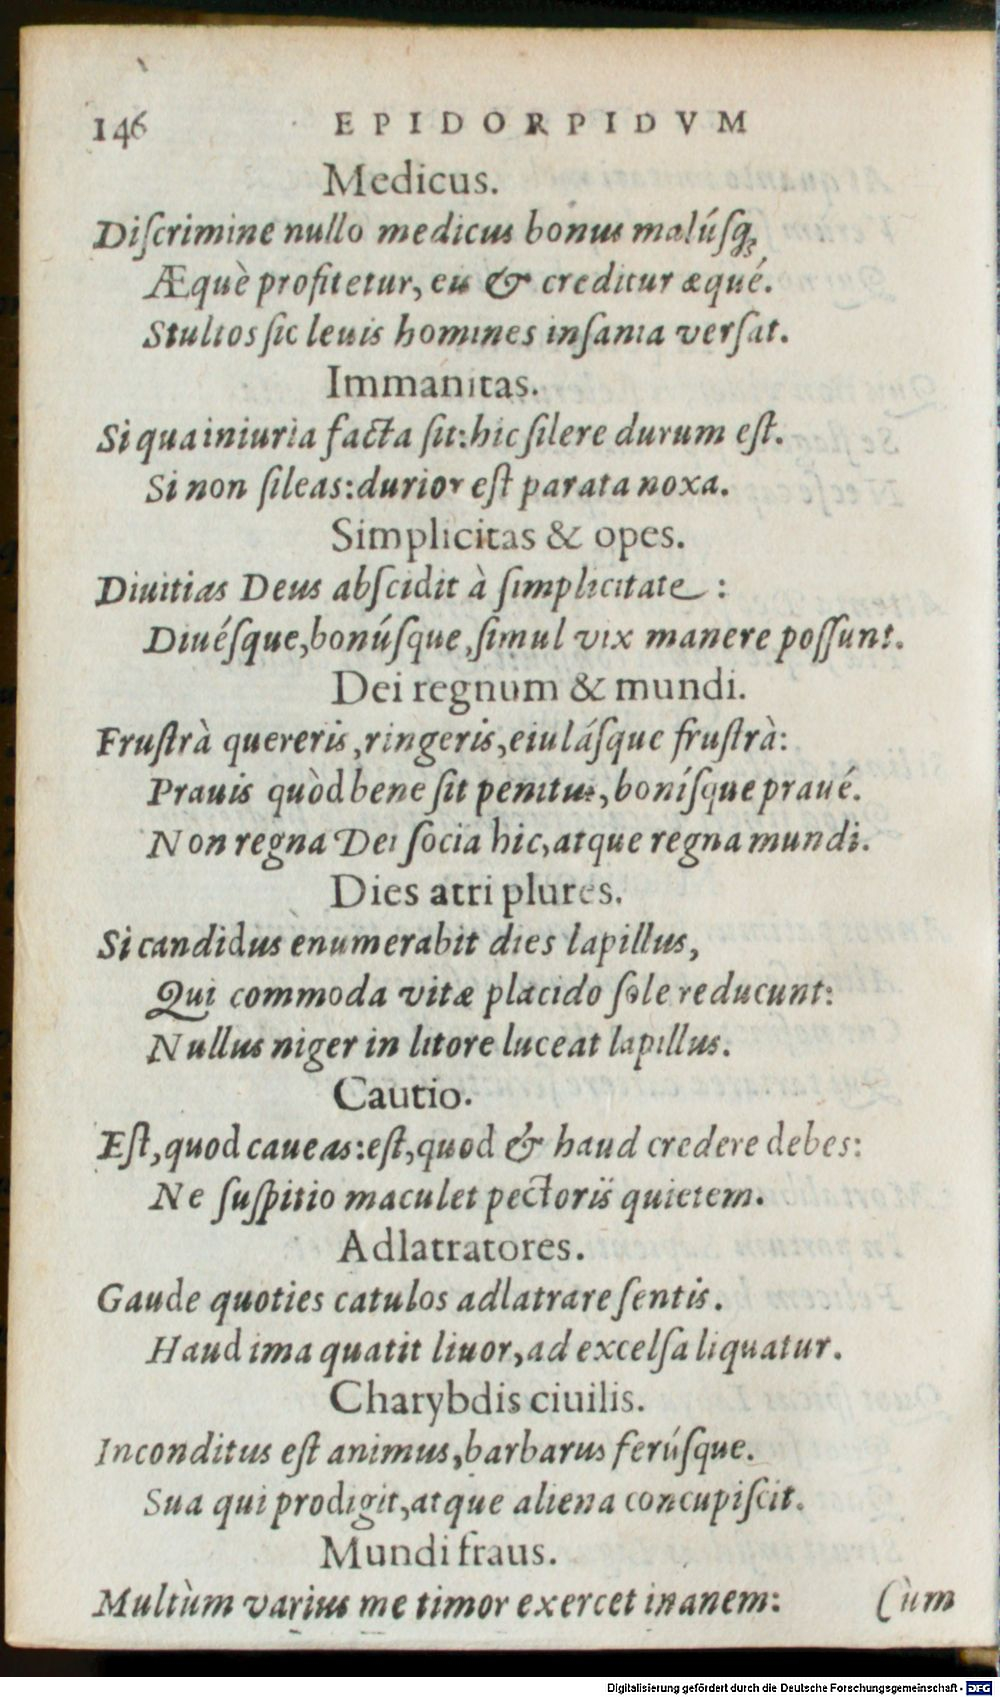 146 EPIDORPIDVM
Medicus.
Diſcrimine nullo medicus bonus malúſq;
Æquè profitetur, eu & creditur æqué.
Stultos ſic leuis homines inſania verſat.
Immanitas.
Si qua iniuria facta ſit: hic ſilere durum eſt.
Si non ſileas: durior eſt parata noxa.
Simplicitas & opes.
Diuitias Deus abſcidit à ſimplicitate :
Diuéſque, bonúſque, ſimul vix manere poſſunt.
Dei regnum & mundi.
Fruſtrà quereris, ringeris, eiuláſque fruſtrà:
Prauis quòd bene ſit penitus, boníſque praué.
Non regna Dei ſocia hic, atque regna mundi.
Dies atri plures.
Si candidus enumerabit dies lapillus,
Qui commoda vitæ placido ſole reducunt:
Nullus niger in litore luceat lapillus.
Cautio.
Eſt, quod caueas: eſt, quod & haud credere debes:
Ne ſuſpitio maculet pectoris quietem.
Adlatratores.
Gaude quoties catulos adlatrare ſentis.
Haud ima quatit liuor, ad excelſa liquatur.
Charybdis ciuilis.
Inconditus eſt animus, barbarus ferúſque.
Sua qui prodigit, atque aliena concupiſcit.
Mundi fraus.
Multùm varius me timor exercet inanem:
Cùm
Digitalisierung gefördert durch die Deutsche Forschungsgemeinschaft - DFG